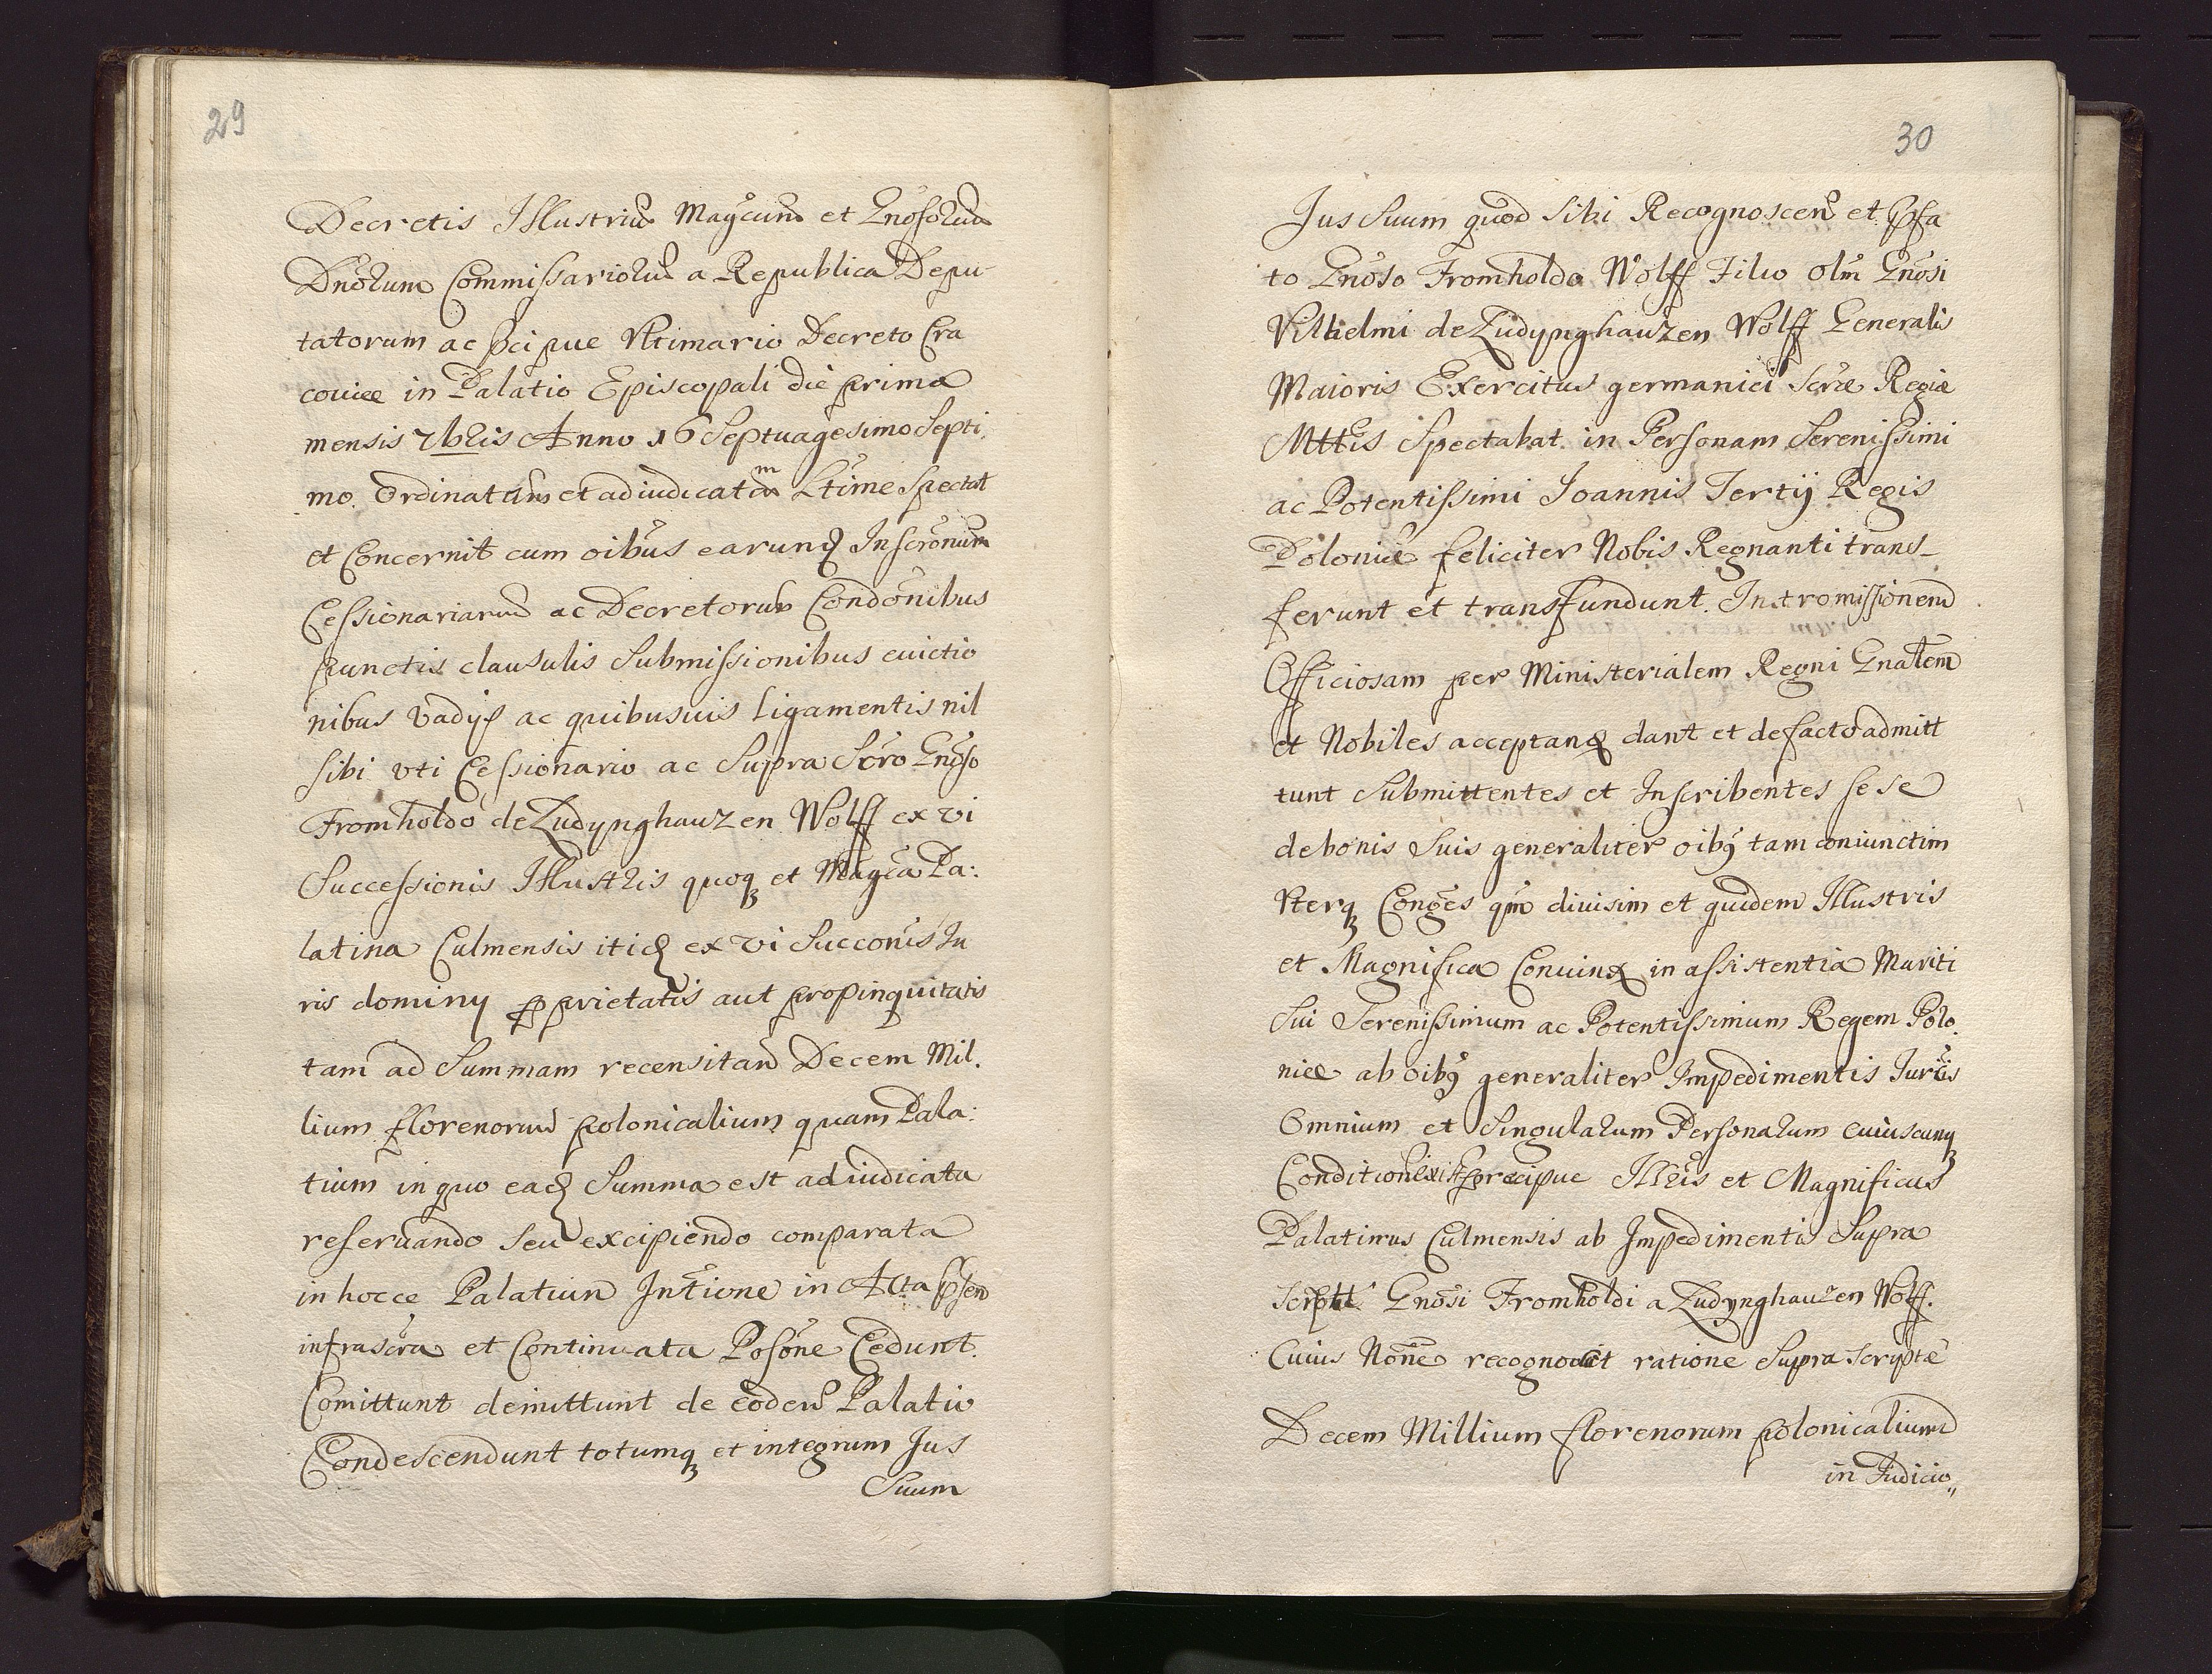 29
Decretis Illustriū Magcūm et Gnosorum
Dnōrum Commissariorum a Republica Depu-
tatorum ac p̄cipue Vltimario Decreto Cra
coviæ in Palatio Episcopali die prima
mensis 7bris Anno 16 Septuagesimo Septi,
mo. Ordinatum et adiudicatam Ltime Spectat
et Concernit cum oibus earund Inscrōnum
Cessionariarum ac Decretorum Condōnibus
punctis clausulis Submissionibus euictio
nibus vadys ac quibusuis Ligamentis nil
sibi vti Cessionario ac Supra Scrō Gnōso
Fromholdo de Ludynghauzen Wolff ex vi
Successionis Illustris quoq et Magca Pa:
latina Culmensis itid ex vi Succonis Ju
ris dominy pprietatis aut propinquitatis
tam ad Summam recensitam Decem Mil.
lium florenorum polonicalium quam Pala:
tium in quo ead Summa est adiudicata
reseruando seu excipiendo comparata
in hocce Palatium Intione in Acta p̄sen
infrascra et Continuata Posōne Cedunt.
Comittunt demittunt de eodem Palatio
Condescendunt totumq et integrum Jus
Suum
30
Jus Suum quod sibi Recognoscen et p̄fa
to Gnōso Fromholdo Wolff Filio Olim Gnōsi
Vilhelmi de Ludynghauzen Wolff Generalis
Maioris Exercitus germanici Scræ Regiæ
Mttis Spectabat in Personam Serenissimi
ac Potentissimi Joannis Tertij Regis
Poloniæ feliciter Nobis Regnanti trans-
ferunt et transfundunt. Intromissionem
Officiosam per Ministerialem Regni Gnalem
et Nobiles acceptand dant et defacto admitt
tunt Submittentes et Inscribentes sese
de bonis Suis generaliter oibq tam coniunctim
Vterq Conges qm diuisim et quidem Illustris
et Magnifica Conuinx in assistentia Mariti
Sui Serenissimum ac Potentissimum Regem Polo.
niæ ab oibq generaliter Impedimentis Juris
Omnium et Singularum Personarum cuiuscunq
Conditionis præcipue Illris et Magnificus
Palatinus Culmensis ab Impedimentis Supra
Scripti Gnōsi Fromholdi a Ludynghauzen Wolff.
Cuius Nōne recognouit ratione Supra scriptæ
Decem Millium florenorum polonicalium
in Judicio,,